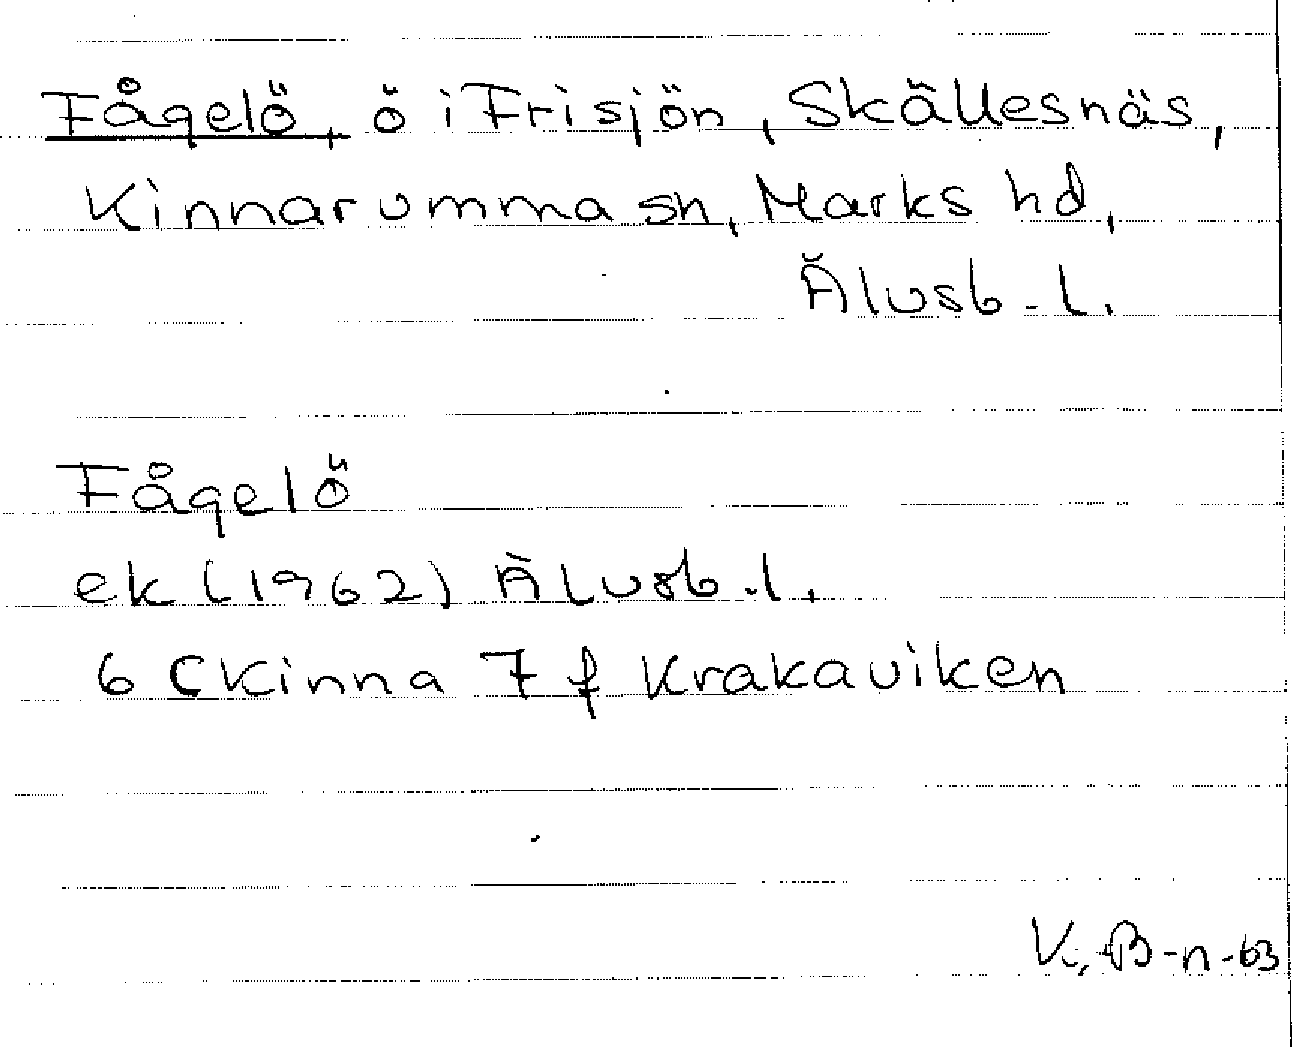 Fågelö, ö i Frisjön, Skällesnäs,
Kinnarumma sn, Marks hd,
Älvsb. l.
Fågelö
ek (1962) Älvsb. l.
6 C Kinna 7 f Krakaviken
K. B-n -63